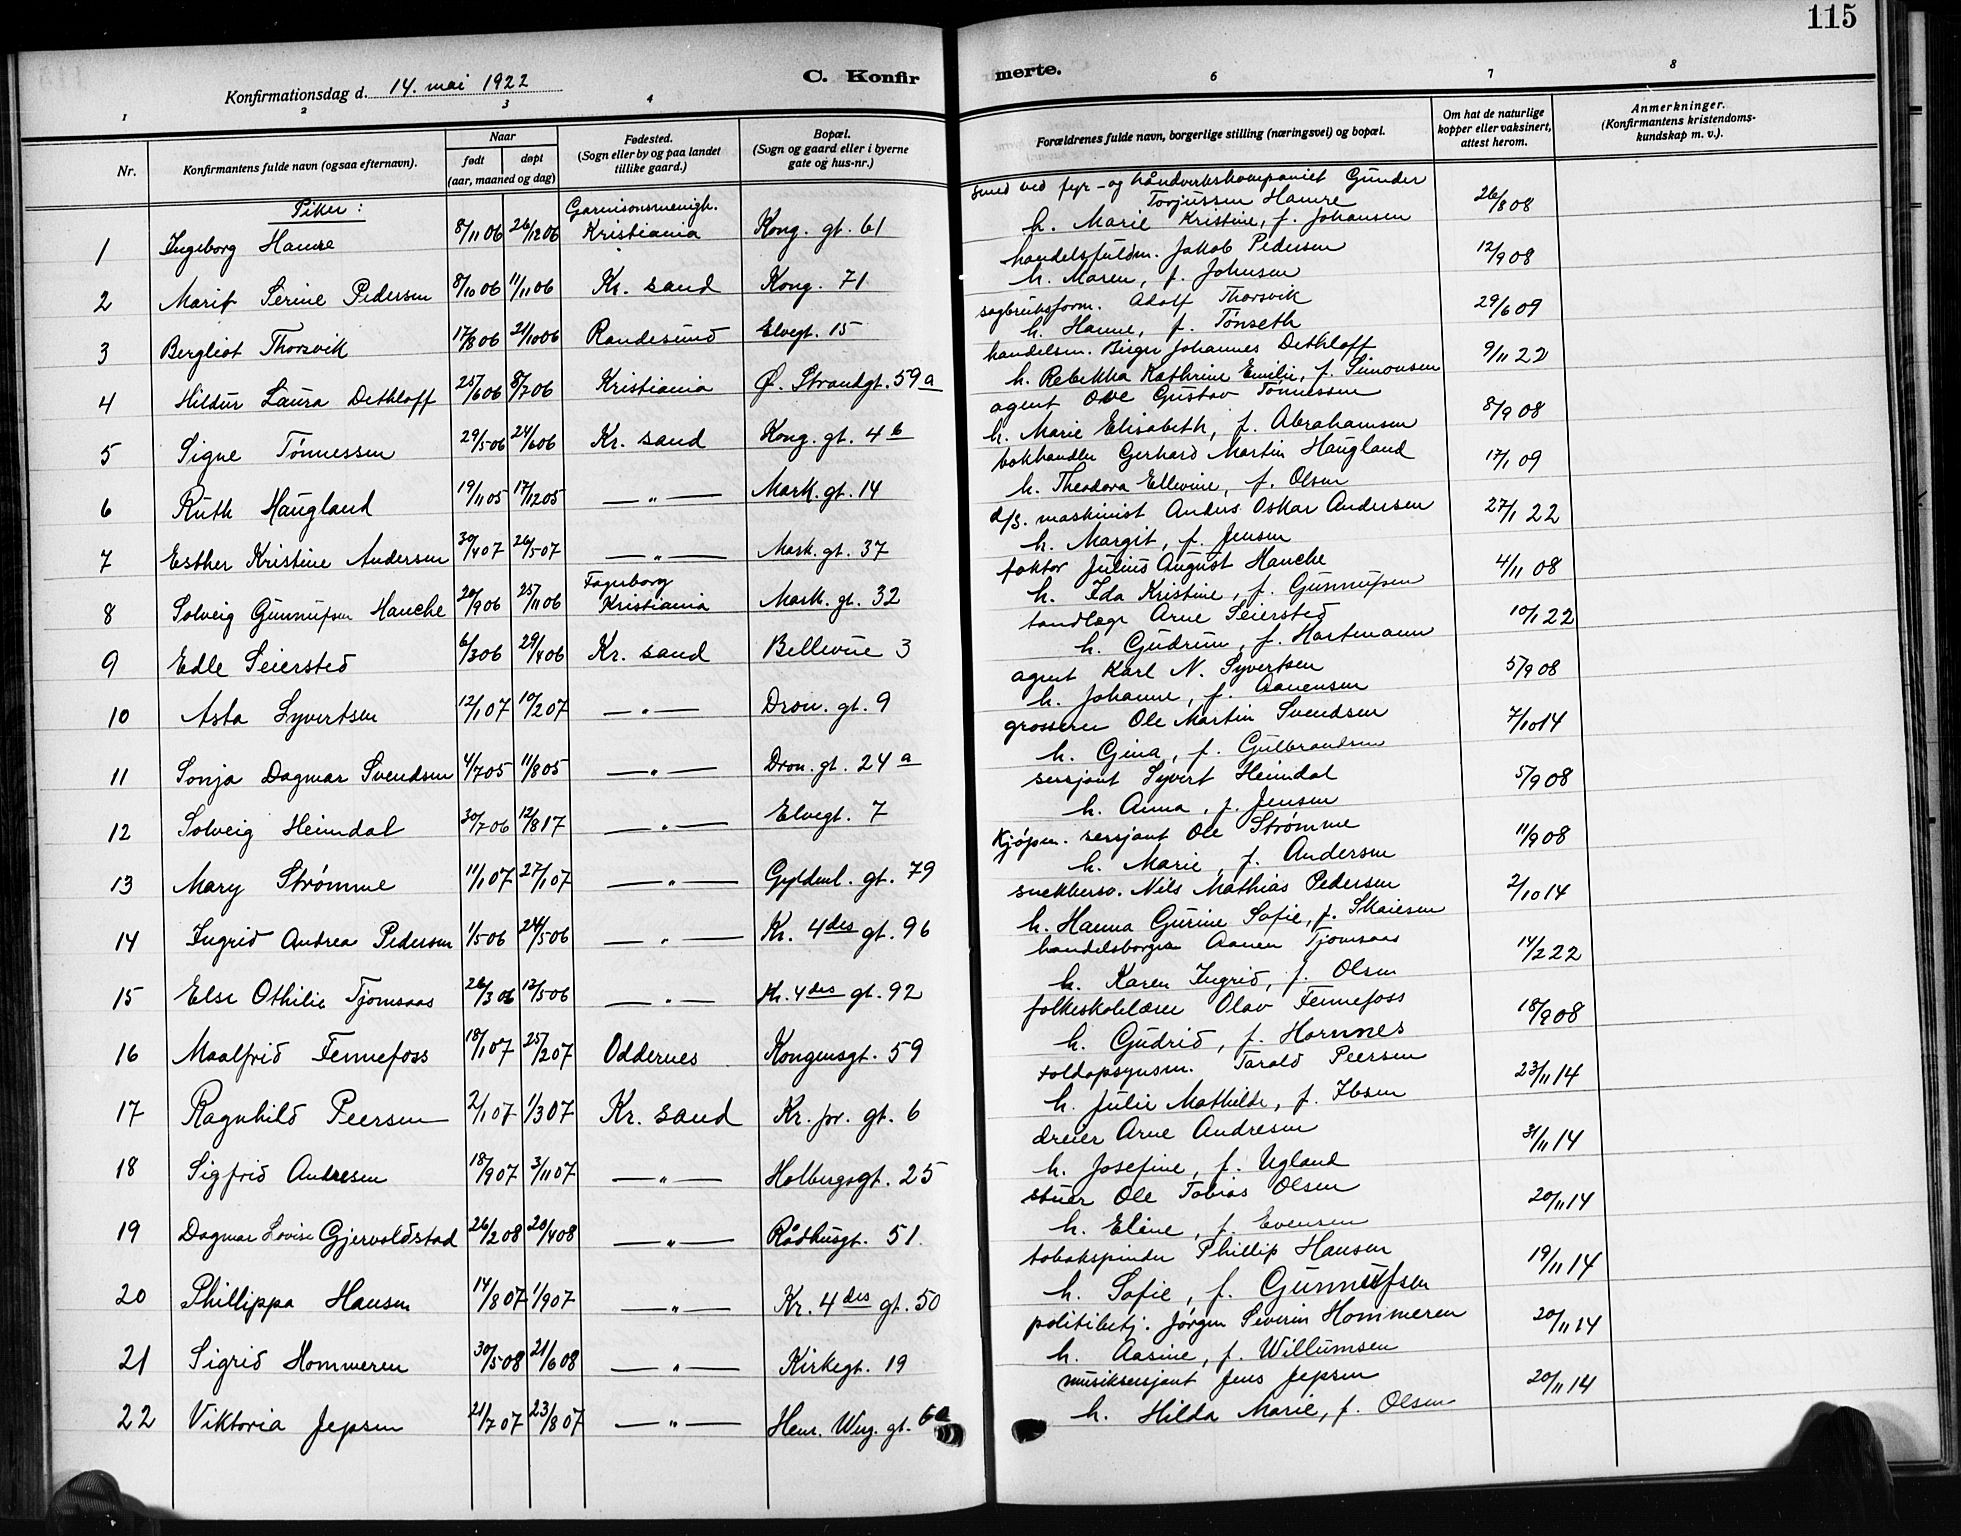 115
C. Konfirmerte.
Konfirmationsdag d. 14. mai 1922
1 2 3 4 6 7 8
Nr.
Konfirmantens fulde navn (ogsaa efternavn).
Naar
født døpt
(aar, maaned og dag)
Fødested.
(Sogn eller by og paa landet
tillike gaard.)
Bopæl.
(Sogn og gaard eller i byerne
gate og hus-nr.)
Forældrenes fulde navn, borgerlige stilling (næringsvei) og bopæl.
Om hat de naturlige
kopper eller vaksinert,
attest herom.
Anmerkninger.
(Konfirmantens kristendoms-
kundskap m. v.).
Piker:
1 Ingeborg Hamre 8/11 06 26/12 06 Garnisonsmenigh. Kristiania Kong. gt. 61
smed ved fyr- og håndverkskompaniet Gunder
Torjussen Hamre
h. Marie Kristine, f. Johansen 26/8 08
2 Marit Serine Pedersen 8/10 06 11/11 06 Kr. sand Kong. 71
handelsfuldm. Jakob Pedersen
h. Maren, f. Johnsen 12/9 08
3 Bergliot Thorsvik 17/8 06 21/10 06 Randesund Elvegt. 15
sagbruksform. Adolf Thorsvik
h. Hanne, f. Tønseth 29/6 09
4 Hildur Laura Dethloff 25/6 06 8/7 06 Kristiania Ø. Strandgt. 59 a
handelsm. Birger Johannes Dethloff
h. Rebekka Kathrine Emilie, f. Simonsen 9/11 22
5 Signe Tønnessen 29/5 06 24/6 06 Kr. sand Kong. gt. 4 b
agent Ove Gustav Tønnessen
h. Marie Elisabeth, f. Abrahamsen 8/9 08
6 Ruth Haugland 19/11 05 17/12 05 — " — Mark. gt. 14
bokhandler Gerhard Martin Haugland
h. Theodora Ellevine, f. Olsen 17/1 09
7 Esther Kristine Andersen 30/4 07 26/5 07 — " — Mark. gt. 37
d/s. maskinist Anders Oskar Andersen
h. Margit, f. Jensen 27/1 22
8 Solveig Gunnufsen Hauche 20/9 06 25/11 06 Fagerborg Kristiania Mark. gt. 32
faktor Julius August Hauche
h. Ida Kristine, f. Gunnufsen 4/11 08
9 Edle Seiersted 6/3 06 29/4 06 Kr. sand Bellevue 3
tandlæge Arne Seiersted
h. Gudrun, f. Hartmann 10/1 22
10 Asta Syvertsen 12/1 07 10/2 07 — " — Dron. gt. 9
agent Karl N. Syvertsen
h. Johanne, f. Aanensen 5/9 08
11 Sonja Dagmar Svendsen 4/7 05 11/8 05 — " — Dron. gt. 24 a
grosserer Ole Martin Svendsen
h. Gina, f. Gulbrandsen 7/10 14
12 Solveig Heimdal 30/7 06 12/8 17 — " — Elvegt. 7
sersjant Syvert Heimdal
h. Anna, f. Jensen 5/9 08
13 Mary Strømme 11/1 07 27/1 07 — " — Gyldenl. gt. 79
Kjøpm. sersjant Ole Strømme
h. Marie, f. Andersen 11/9 08
14 Ingrid Andrea Pedersen 1/5 06 24/5 06 — " — Kr. 4des gt. 96
snekkersv. Nils Mathias Pedersen
h. Hanna Gurine Sofie, f. Skaiesen 2/10 14
15 Else Othilie Tjomsaas 26/3 06 12/5 06 — " — Kr. 4des gt. 92
handelsborger Aanen Tjomsaas
h. Karen Ingrid, f. Olsen 14/2 22
16 Maalfrid Fennefoss 18/1 07 25/2 07 Oddernes Kongensgt. 59
folkeskolelærer Olav Fennefoss
h. Gudrid, f. Hornnes 18/9 08
17 Ragnhild Peersen 2/1 07 1/3 07 Kr. sand Kr. pr. gt. 6
toldopsynsm. Tarald Peersen
h. Julie Mathilde, f. Ibsen 23/11 14
18 Sigfrid Andresen 18/9 07 3/11 07 — " — Holbergsgt. 25
dreier Arne Andresen
h. Josefine, f. Ugland 31/11 14
19 Dagmar Lovise Gjervoldstad 26/2 08 20/4 08 — " — Rådhusgt. 51.
stuer Ole Tobias Olsen
h. Eline, f. Evensen 20/11 14
20 Phillippa Hansen 14/8 07 1/9 07 — " — Kr. 4des gt. 50
tobakspinder Phillip Hansen
h. Sofie, f. Gunnufsen 19/11 14
21 Sigrid Hommeren 30/5 08 21/6 08 — " — Kirkegt. 19
politibetj. Jørgen Severin Hommeren
h. Aasine, f. Willumsen 20/11 14
22 Viktoria Jepsen 21/7 07 23/8 07 — " — Henr. Werg. gt.
musiksersjant Jens Jepsen
h. Hilda Marie, f. Olsen 20/11 14